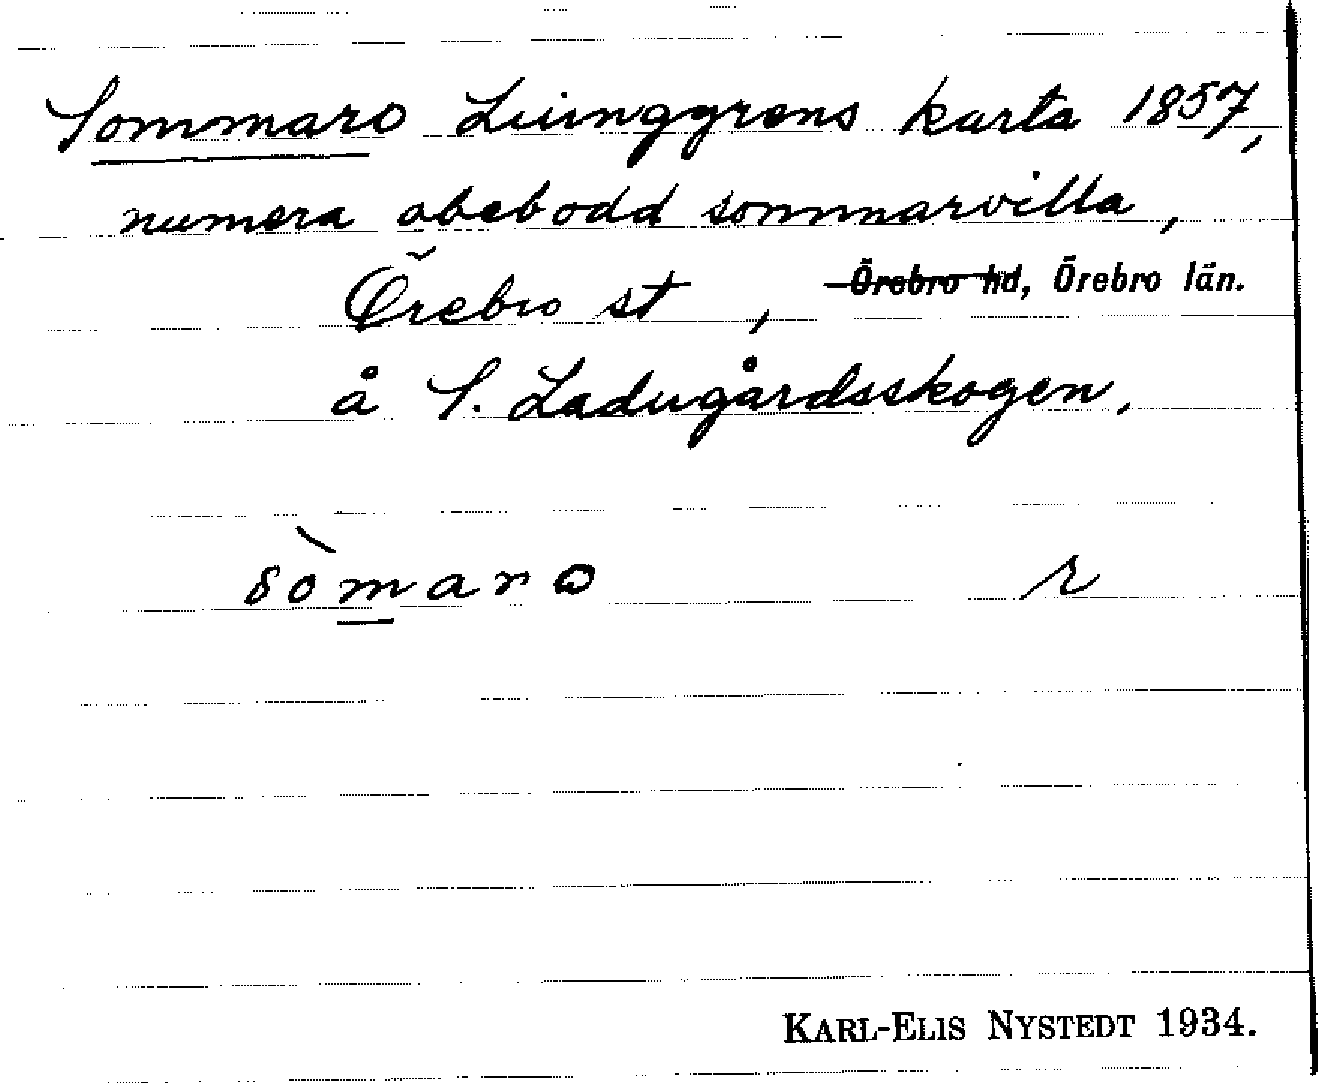 Sommaro Ljunggrens karta 1857,
numera obebodd sommarvilla,
Örebro st, Örebro hd, Örebro län.
å S. Ladugårdsskogen.
sòmaro r
KARL-ELIS NYSTEDT 1934.